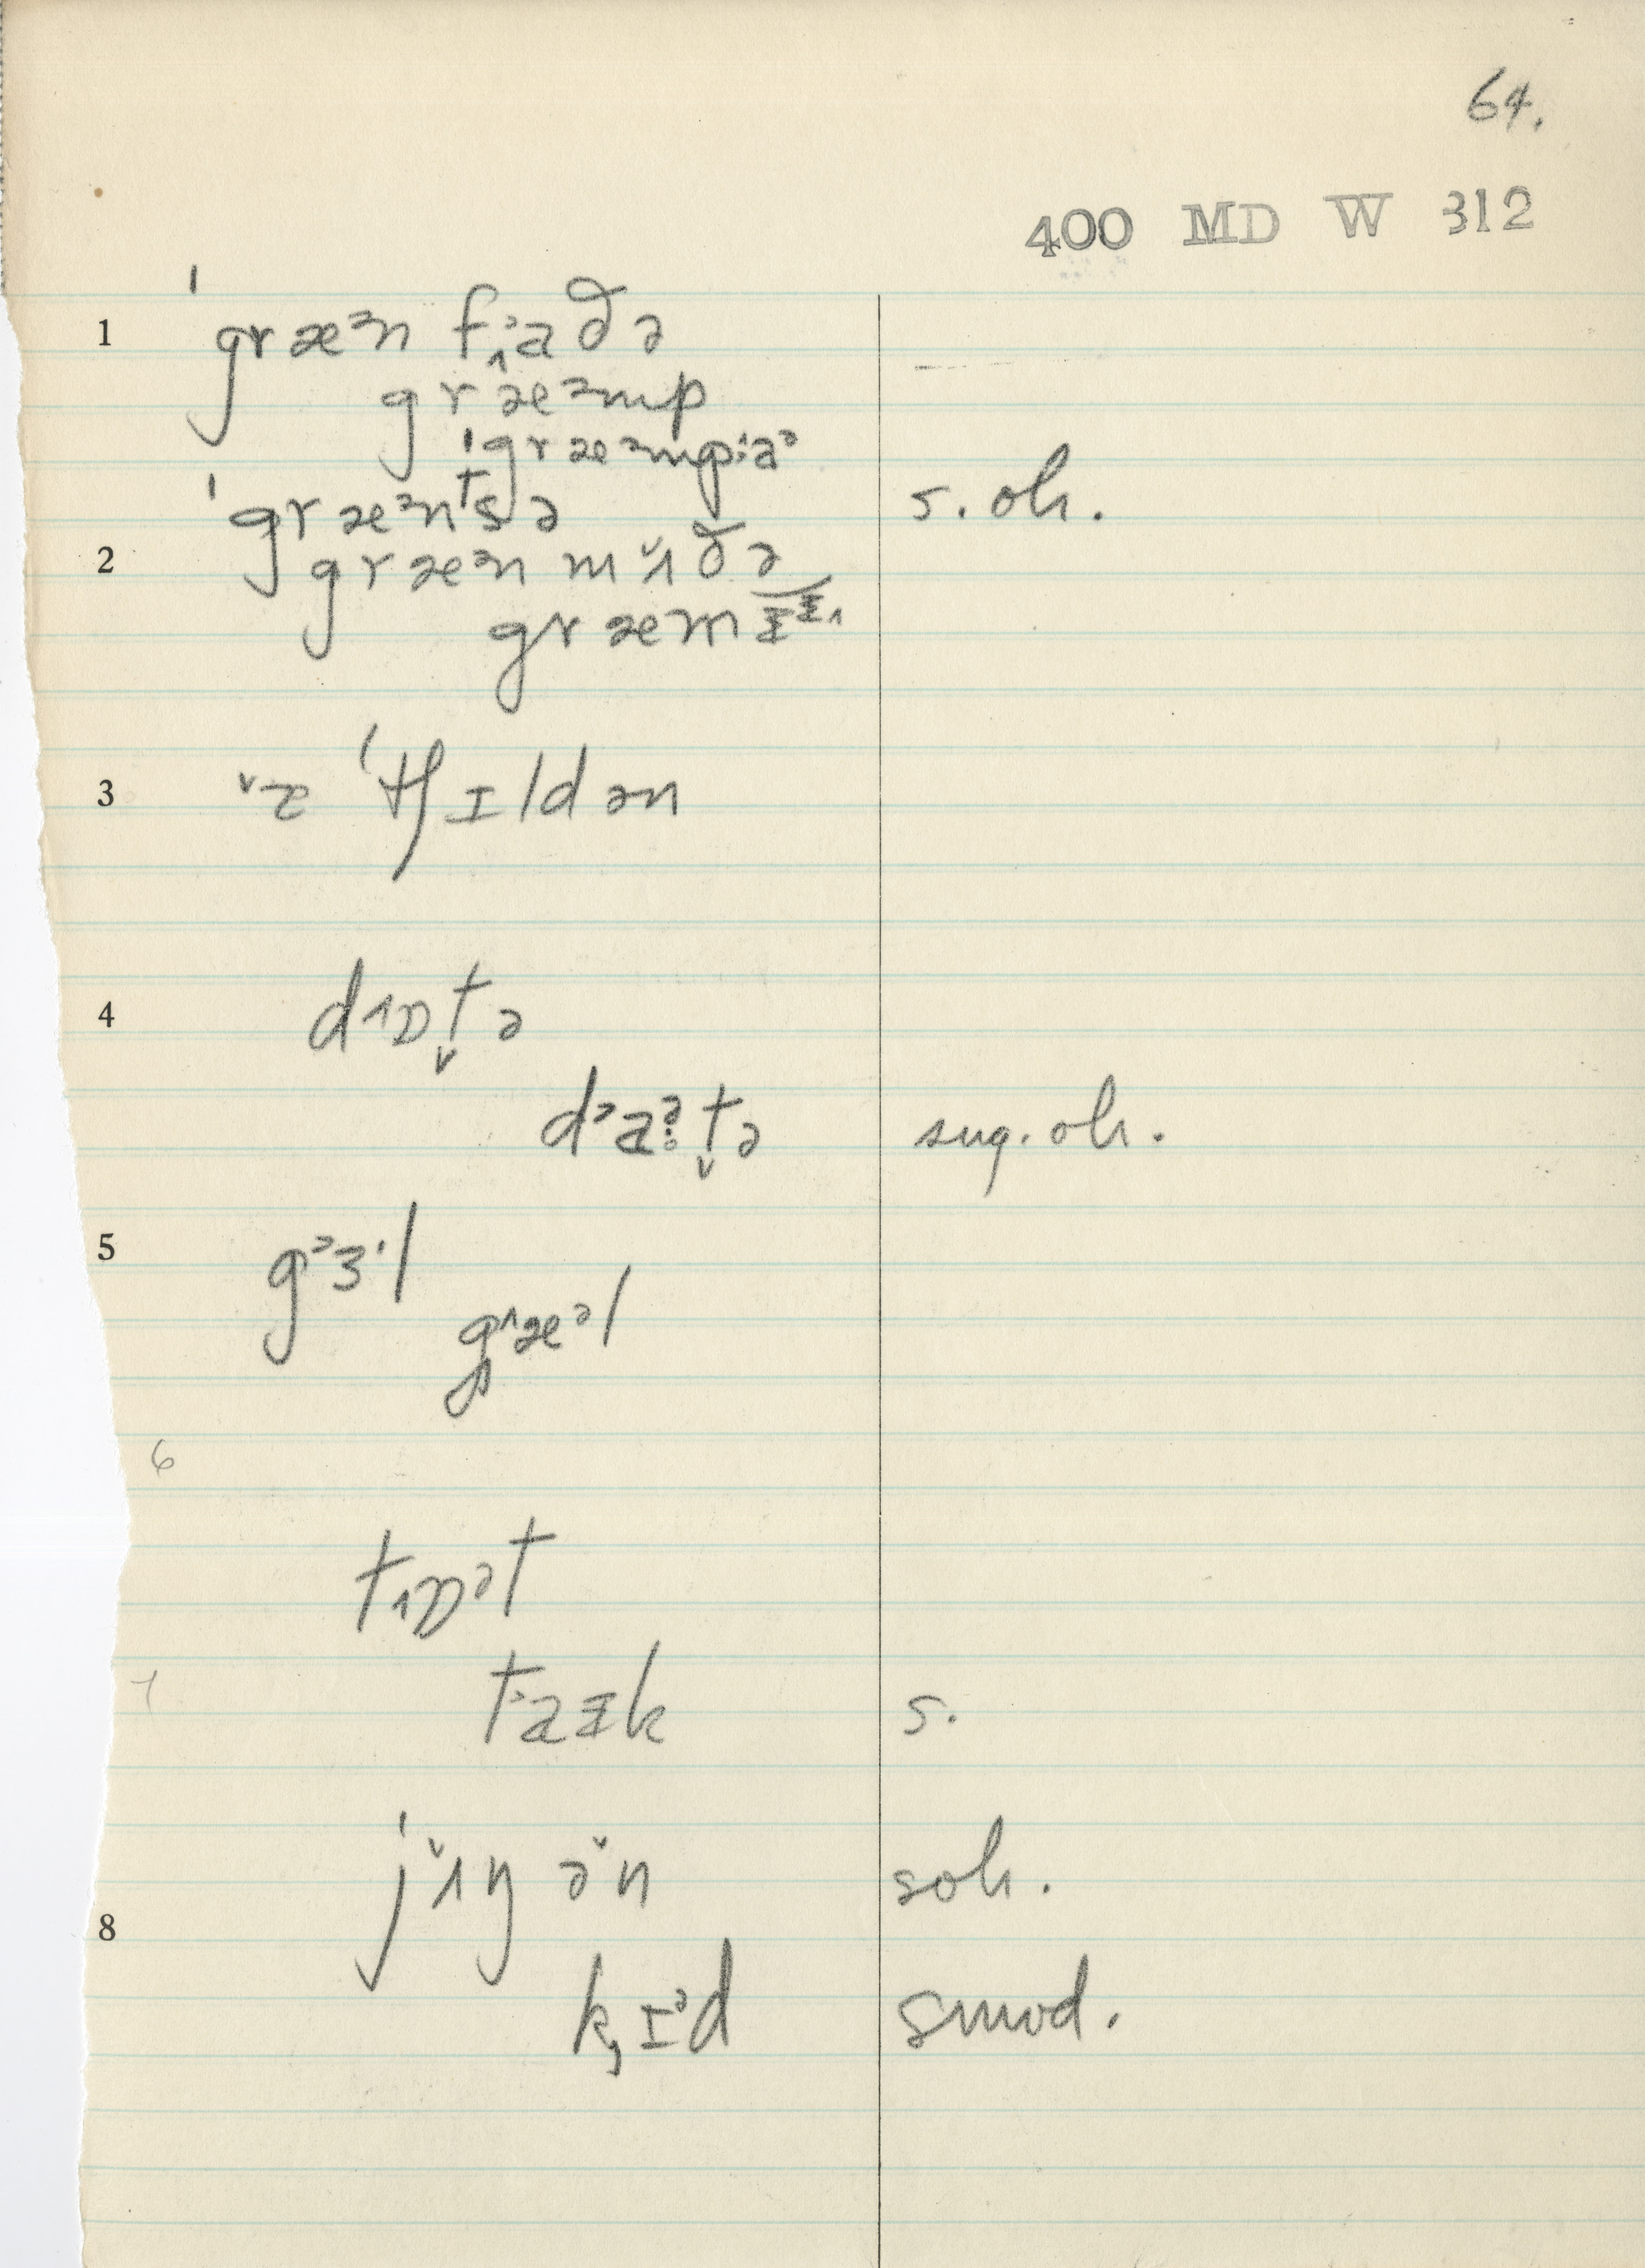 64.
400 MD W 312
1 ˈgræᵊn f˒ɑðə
græᵊmp
ˈgræᵊmp:ɑᵊ
ˈgræᵊnᵗsə s. oh.
2 græᵊn mʌ̌ðə
græm
3 ˈtʃɪldən
4 dɒt̬ə
dɑt̬ə sug. oh.
5 gɜl
gæᵊl
6
tɒᵊt
7 tɑᵻk s.
ˈjʌŋ ən soh.
8 kɪᵊd smod.